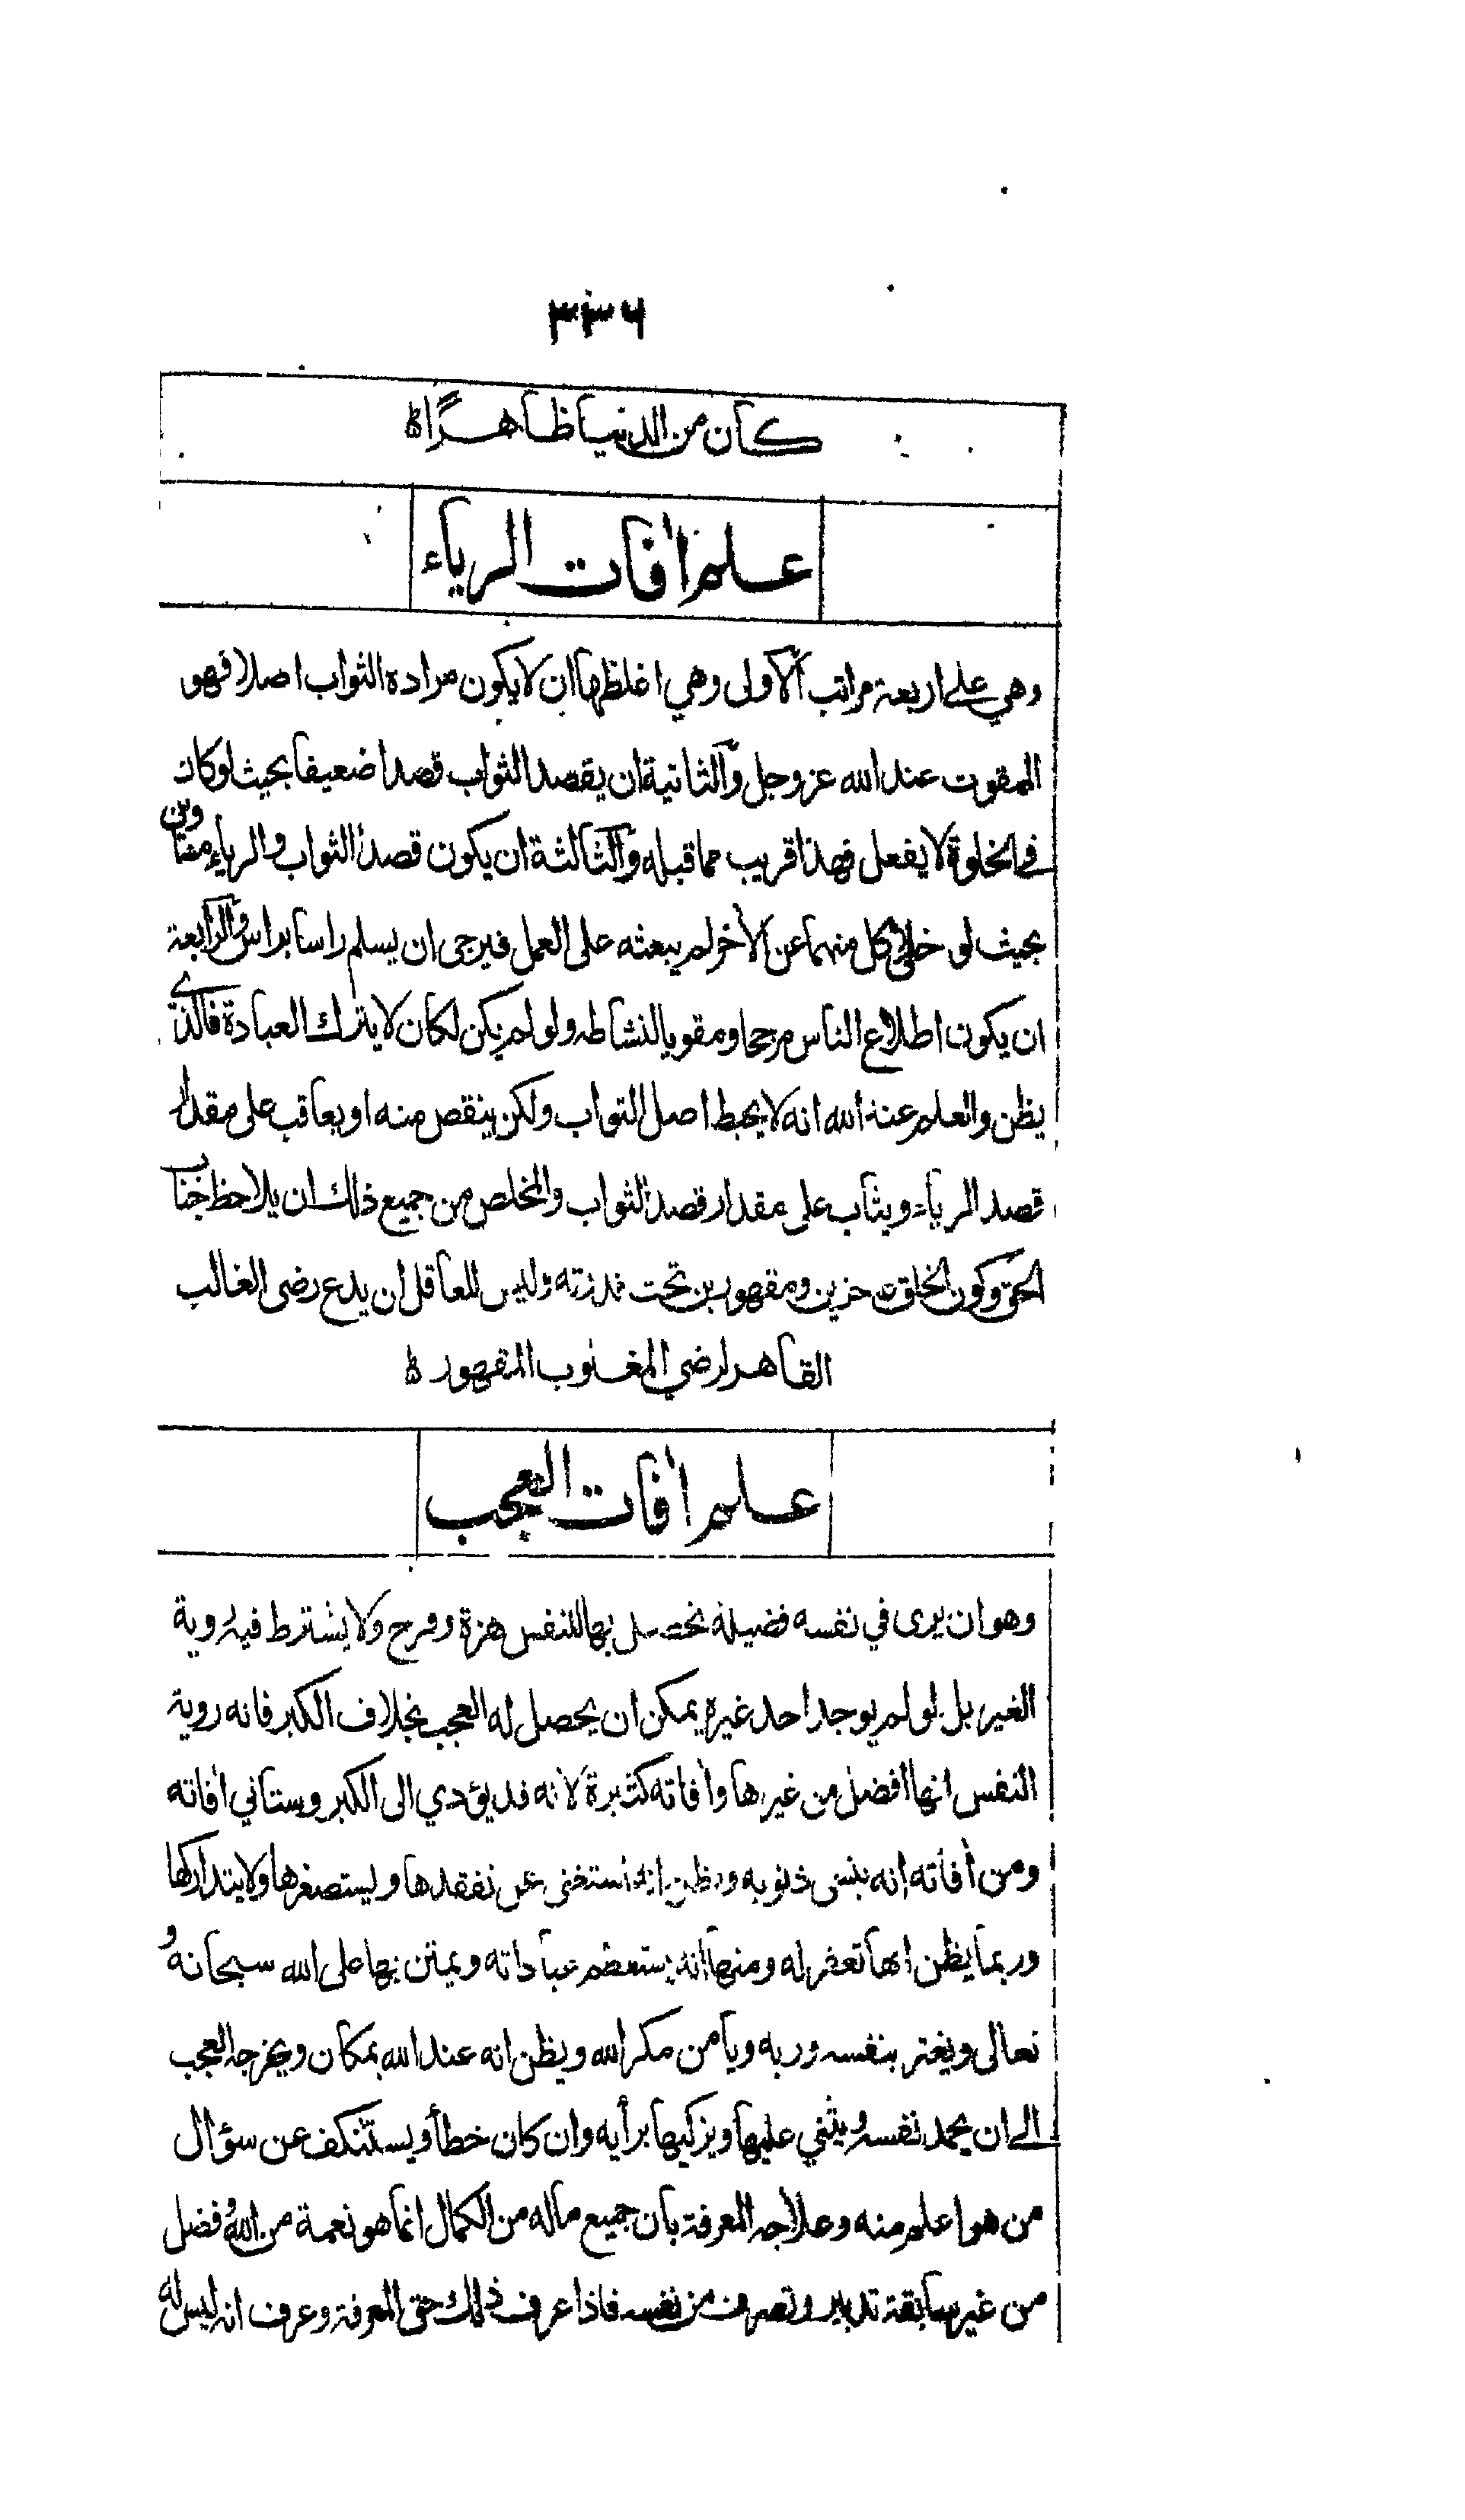 ٣٣٦
كان من الدنيا ظاهرًا
علم آفات الرياء
وهي على اربعة مراتب الاولى وهي اغلظها ان لا يكون مراده الثواب اصلا فهو
الممقوت عند الله عز وجل والثانية ان يقصد الثواب قصدا ضعيفا بحيث لو كان
في الخلوة لا يفعل فهذا قريب مما قبله والثالثة ان يكون قصد الثواب والرياء متساويين
بحيث لو خلى كل منهما عن الآخر لم يبعثه على العمل فيرجى ان يسلم راسا براس والرابعة
ان يكون اطلاع الناس مرجحا ومقويا لنشاطه ولو لم يكن لكان لا يترك العبادة فالذي
يظن والعلم عند الله انه لا يحبط اصل الثواب ولكن ينقص منه او يعاقب على مقدار
قصد الرياء ويثاب على مقدار قصد الثواب والمخلص من جميع ذلك ان يلاحظ جناب
الحق وكون الخلق ومقهورين تحت قدرته وليس للعاقل ان يدع رضى الغالب
القاهر لرضي المغلوب المقهور
علم آفات العجب
وهو ان يرى في نفسه فضيلة تحصل بها للنفس هزة وفرح ولا يشترط فيه روية
الغير بل لو لم يوجد احد غيره يمكن ان يحصل له العجب بخلاف الكبر فانه روية
النفس انها افضل من غيرها وآفاته كثيرة لانه قد يؤدي الى الكبر وستاتي آفاته
ومن آفاته انه ينسى ذنوبه ويظن انه استغنى عن تفقدها وليستصغرها ولا يتداركها
وربما يظن انها تغفر له ومنها انه يستعظم عباداته ويمتن بها على الله سبحانه و
تعالى ويغتر بنفسه وربه ويأمن مكر الله ويظن انه عند الله بمكان ويخرجه العجب
الى ان يحمد نفسه ويثني عليها ويزكيها برأيه وان كان خطأ ويستنكف عن سؤال
من هو اعلم منه وعلاجه المعرفة بان جميع ماله من الكمال انما هو نعمة من الله وفضل
من غير سابقة تدبير وتصرف من نفسه فاذا عرف ذلك حق المعرفة وعرف انه ليس له